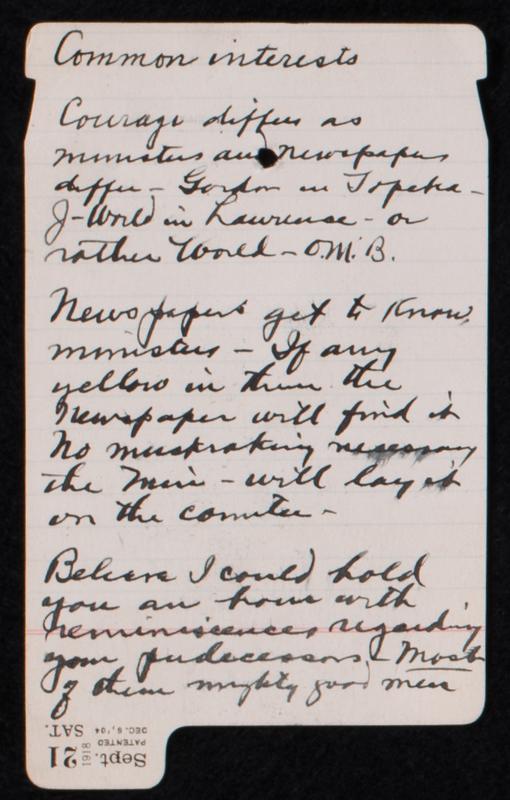 Common interests
Courage differs as
ministers and newspapers
differ - Gordon in Topeka -
J-World in Lawrence - or
rather World - O.M.B.
Newspapers get to know
ministers - If any
yellow in them the
newspaper will find it
No muckraking necessary
the Min - will lay it
on the counter -
Believe I could hold
you an hour with
reminiscences regarding
your predecessors - Most
of them mighty good men
Sept. 21 1918 SAT.
PATENTED DEC. 6, '04